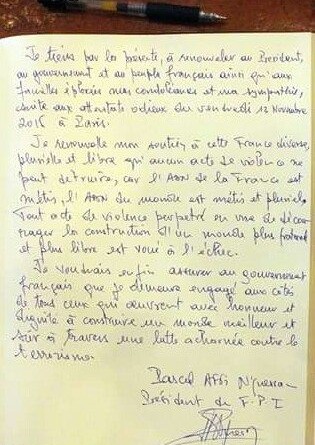 Je tiens par la présente, à renouveler au Président,
au gouvernement et au peuple français ainsi qu'aux
familles éplorées mes condoléances et ma sympathie,
suite aux attentats odieux du vendredi 13 Novembre
2015 à Paris.
Je renouvelle mon soutien à cette France diverse,
plurielle et libre qu'aucun acte de violence ne
peut détruire, car l'ADN de la France est
métis, l'ADN du monde est métis et pluriel.
Tout acte de violence perpétré en vue de décou-
rager la construction d'un monde plus fraternel
et plus libre est voué à l'échec.
Je voudrais enfin assurer au gouvernement
français que je demeure engagé aux côtés
de tous ceux qui œuvrent avec honneur et
dignité à construire un monde meilleur et
sûr à travers une lutte acharnée contre le
terrorisme.
Pascal Affi N'Guessan
Président du F.P.I